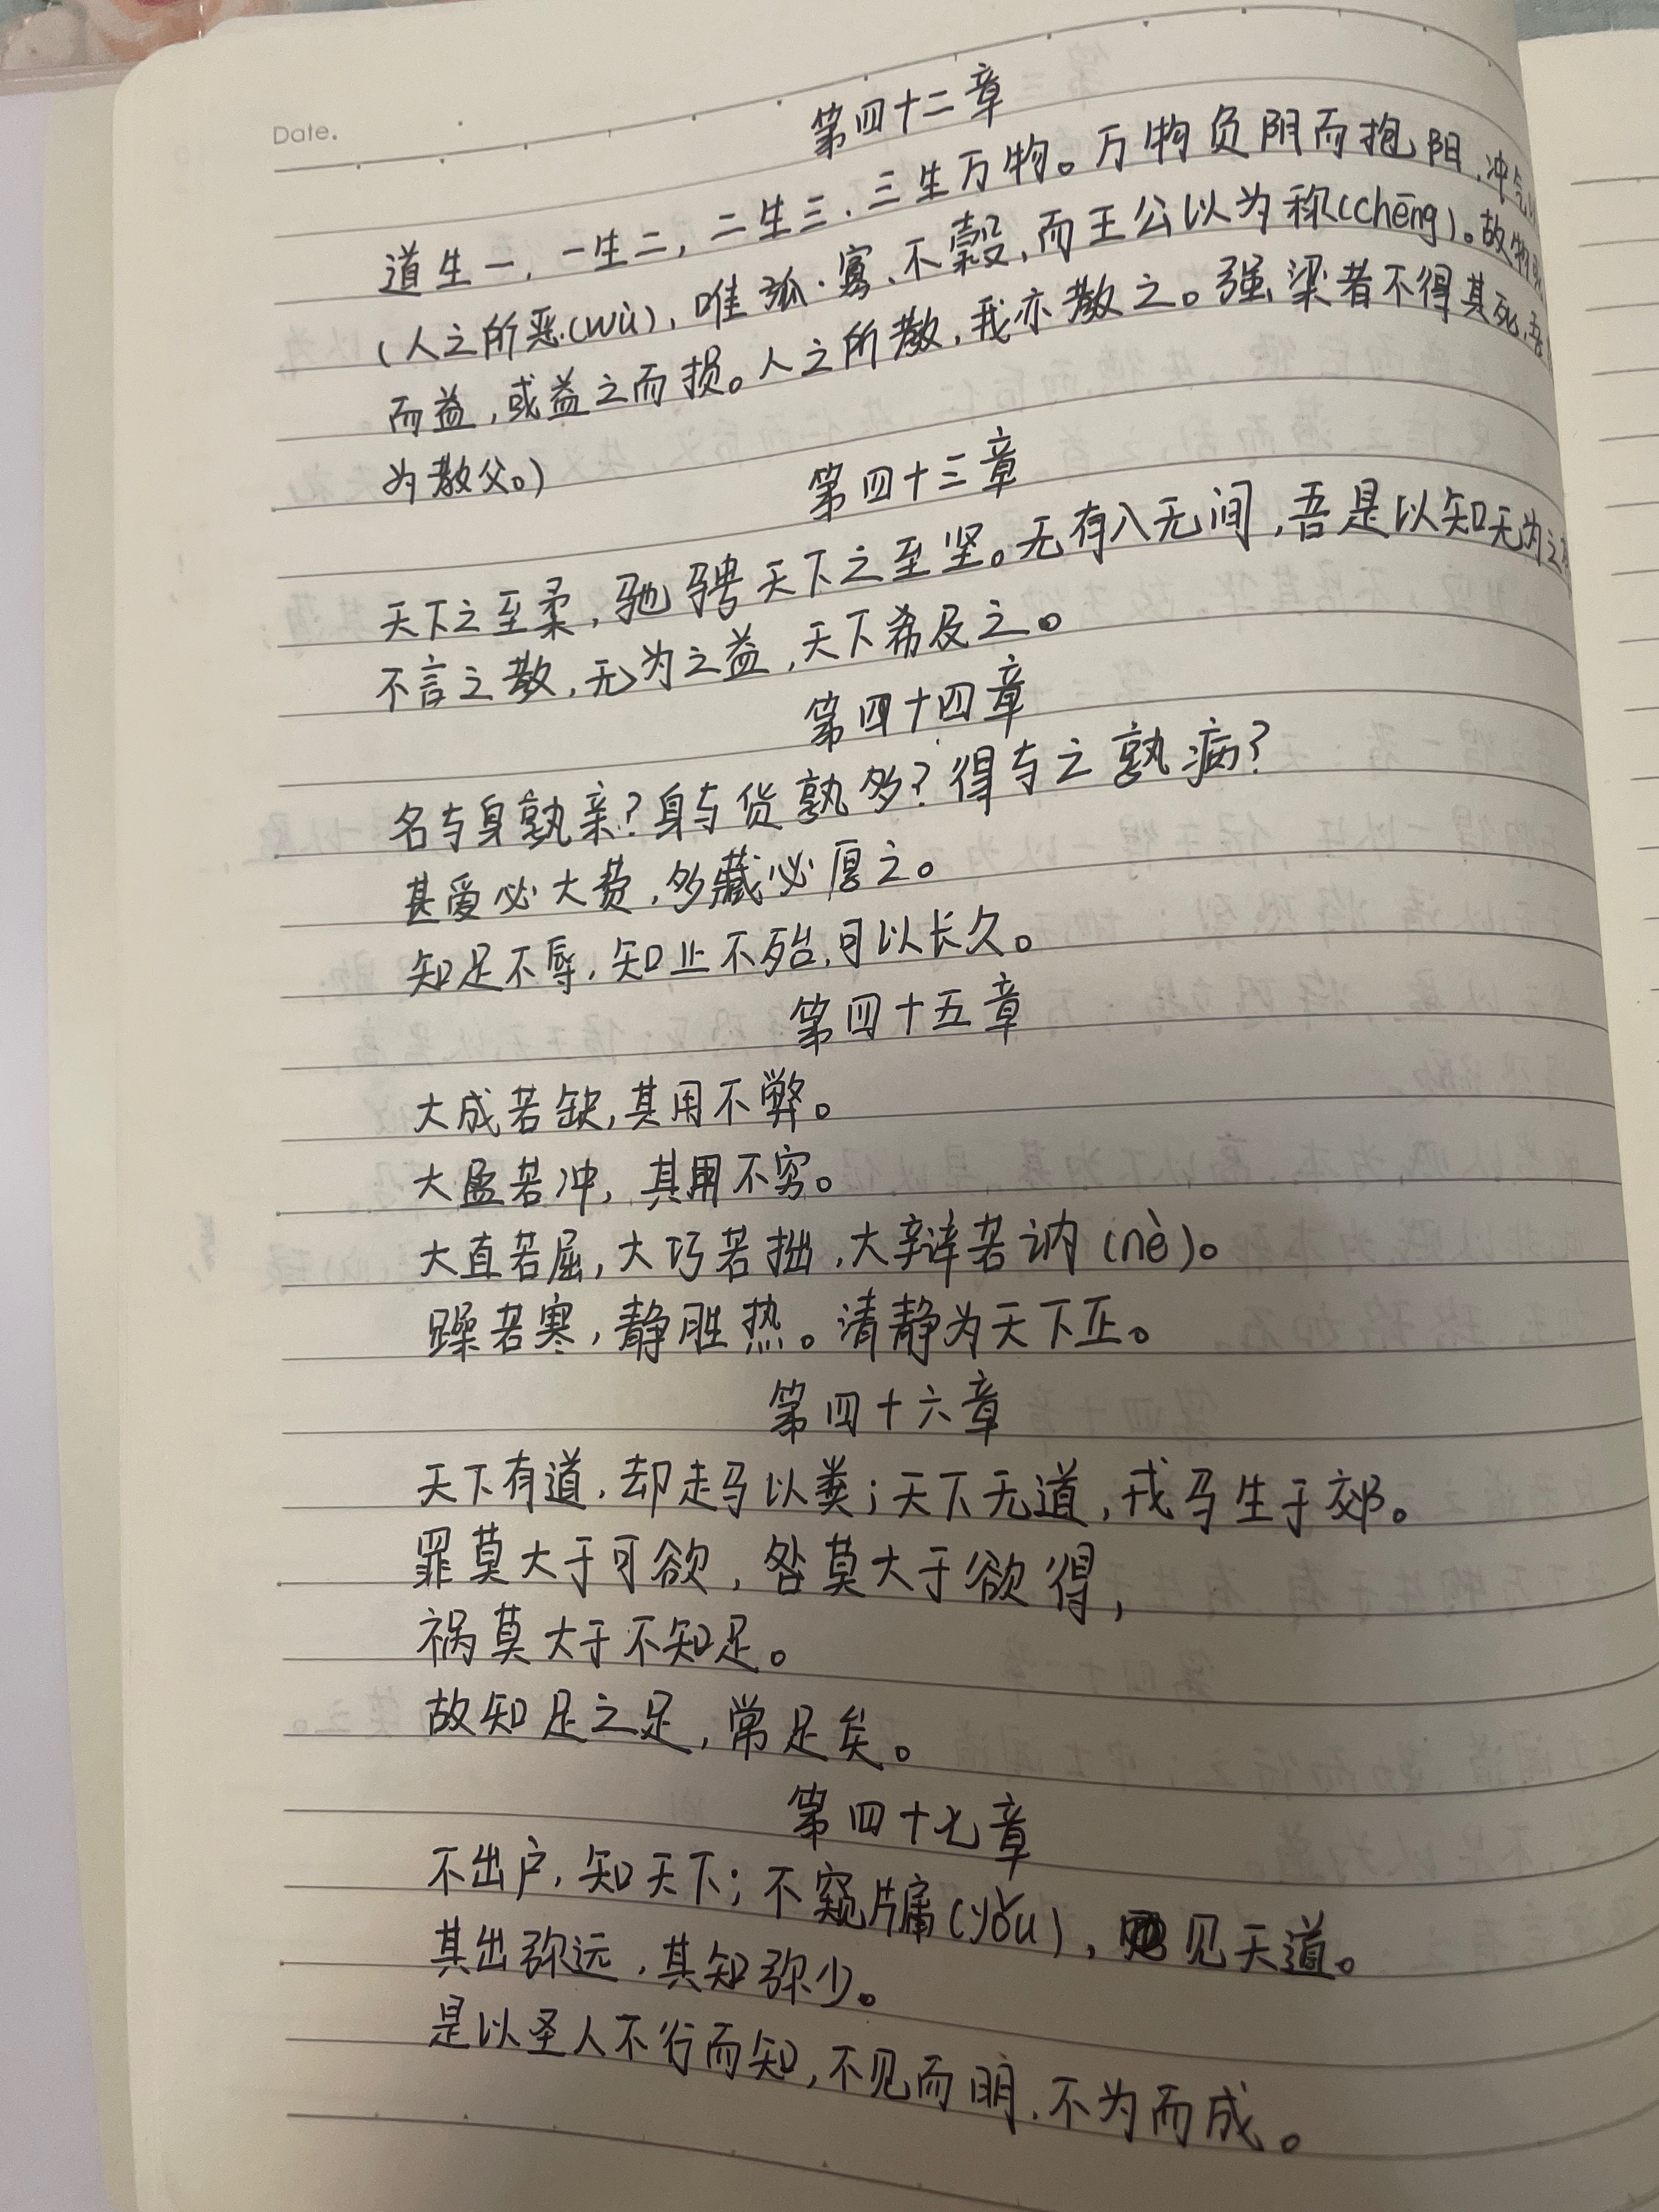 Date.
第四十二章
道生一，一生二，二生三，三生万物。万物负阴而抱阳，冲气
（人之所恶(wù)，唯孤、寡、不穀，而王公以为称(chēng)。故物
而益，或益之而损。人之所教，我亦教之。强梁者不得其死，吾
为教父。）
第四十三章
天下之至柔，驰骋天下之至坚。无有入无间，吾是以知无为之
不言之教，无为之益，天下希及之。
第四十四章
名与身孰亲？身与货孰多？得与亡孰病？
甚爱必大费，多藏必厚亡。
知足不辱，知止不殆，可以长久。
第四十五章
大成若缺，其用不弊。
大盈若冲，其用不穷。
大直若屈，大巧若拙，大辩若讷(nè)。
躁若寒，静胜热。清静为天下正。
第四十六章
天下有道，却走马以粪；天下无道，戎马生于郊。
罪莫大于可欲，咎莫大于欲得，
祸莫大于不知足。
故知足之足，常足矣。
第四十七章
不出户，知天下；不窥牖(yǒu)，见天道。
其出弥远，其知弥少。
是以圣人不行而知，不见而明，不为而成。